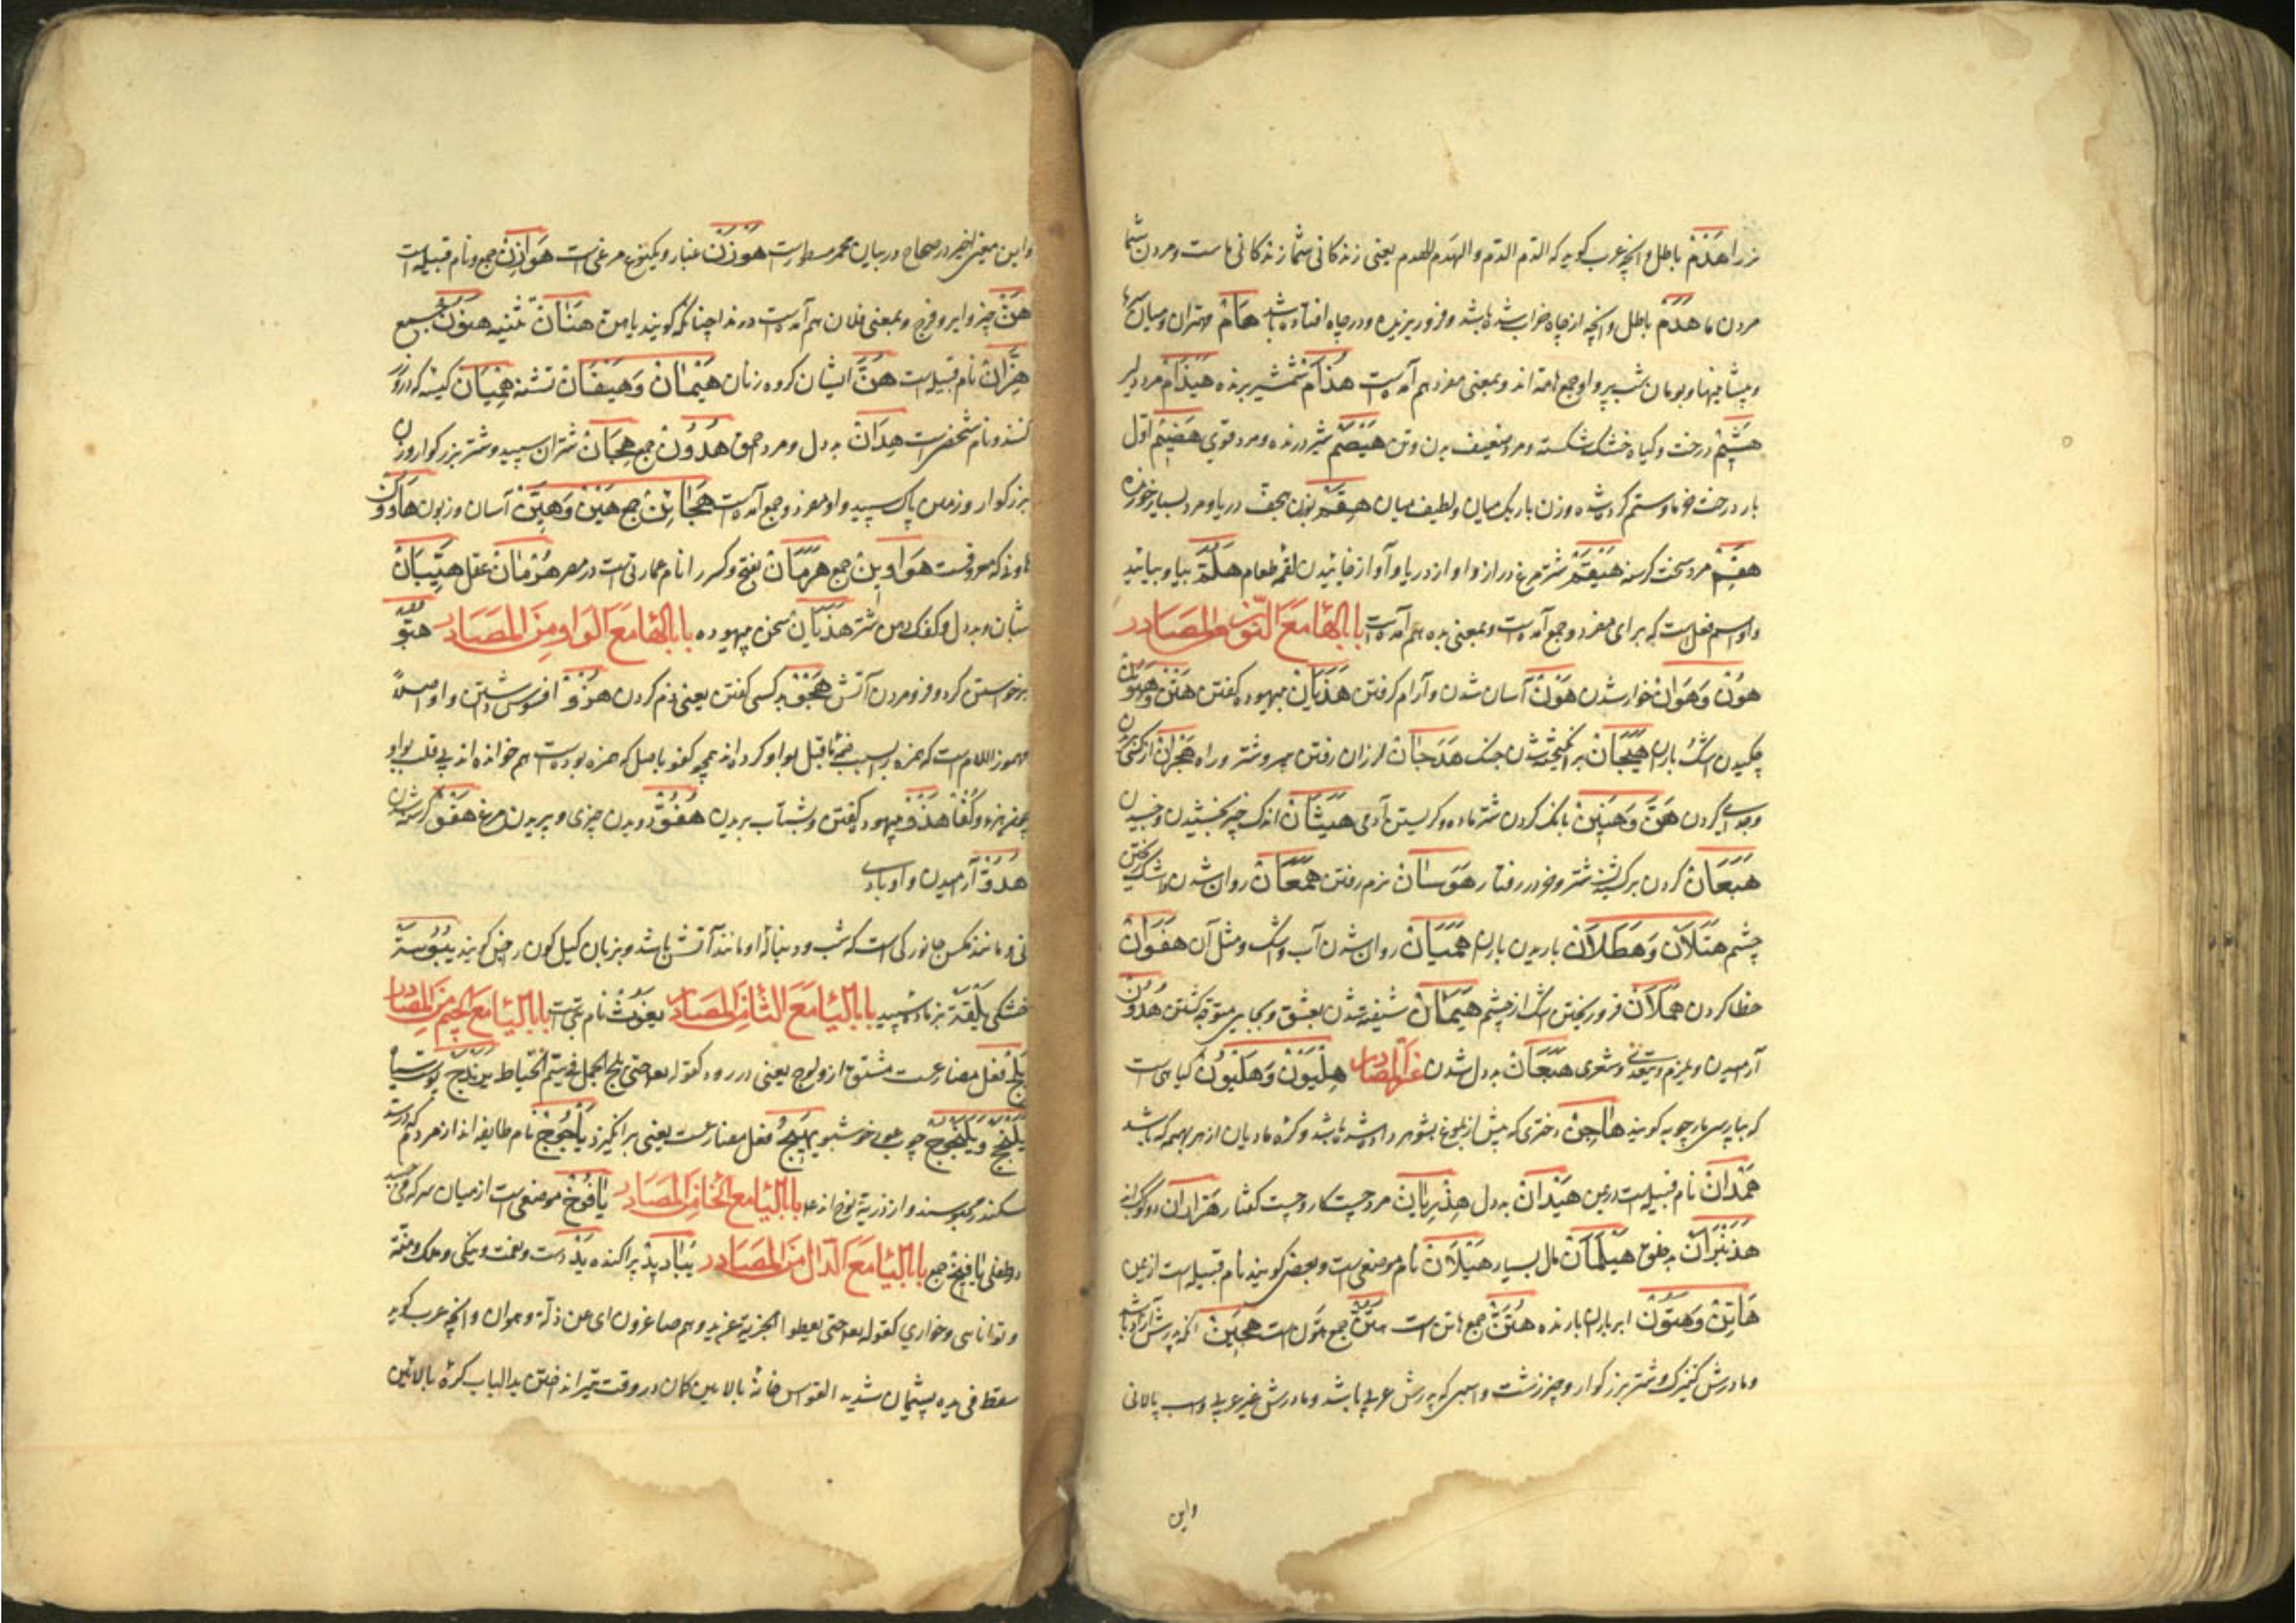 نزد را هَدْمْ باطل و آنچه عرب کوید که الدّم الدّم و الهدم الهدم یعنی زندکانی شما زندکانی ماست و مردن شما
مردن ما هَدَمْ باطل و آنچه از چاه خراب شده باشد و فرو ریزیده و در چاه افتاده باشد هَامْ مهتران و میان سرها
و پیشانیها و بومان شب پر و او جمع هامه اند و بمعنی مفرد هم آمده است هُذَامْ شمشیر برنده هَیْذَامْ مرد دلیر
هَشِیْمْ درخت و کیاه خشک شکسته و مرد ضعیف بدن و تن هَیْصَمْ شیر درنده و مرد قوی هَضِیْمْ اول
بار درخت خرما و ستم کرده شده و زن باریک میان و لطیف میان هِقَمّْ دریا و مرد بسیار خورنده
هَقِمْ مرد سخت کرسنه هَیْقَمْ شترمرغ دراز و آواز دریا و آواز خائیدن لقمه طعام هَلُمَّ بیا و بیائید
و او اسم فعل است که برای مفرد و جمع آمده است و بمعنی بده هم آمده است باب الهاء مع النون من المصادر
هُوْنْ وَهَوَانْ خوار شدن هَوْنْ آسان شدن و آرام کرفتن هَذَیَانْ بیهوده کفتن هَتْنْ وَهُتُوْنْ
چکیدن اشک و باران هَیَجَانْ برانکیخته شدن جنک هَدَجَانْ لرزان رفتن پیر و شتر و راه هِجْرَانْ از کسی بریدن
و جدایی کردن هَنّْ وَهَنِیْنْ بانک کردن شتر ماده و کریستن آدمی هَیَثَانْ اندک چیز بخشیدن و جنبیدن
هَبَعَانْ کردن برکشیدن شتر و خر در رفتار هَوَسَانْ نرم رفتن هَمَعَانْ روان شدن اشک ریختن
چشم هَتَلَانْ وَهَطَلَانْ باریدن باران هَمَیَانْ روان شدن آب و اشک و مثل آن هَفَوَانْ
خطا کردن هَمَلَانْ فرو ریختن اشک از چشم هَیَمَانْ شیفته شدن بعشق و بجایی متوجه کشتن هُدُوْنْ
آرمیدن و بلزم و یتعدی و شعری هَیَعَانْ بددل شدن غیر المصادر هِلْیَوْنْ وَهَلْیُوْنْ کیاهی است
که بپارسی مارچوبه کویند هَاجِنْ دختری که پیش از بلوغ بشوهر داده شده باشد و کره مادیان از هر بهیمه که باشد
هَمْدَانْ نام قبیله است در یمن هَیْدَانْ بددل هِذْرِیَانْ مرد چست کار و چست کفتار
هَذَنْبَرَانْ بدخلق هَیْلَمَانْ مال بسیار هَیْلَانْ نام موضعی است و بعضی کویند نام قبیله است از یمن
هَاتِنْ وَهَتُوْنْ ابر باران بارنده هُتَّنْ جمع هاتن است هُتُنْ جمع هتون است هَجِیْنْ آنکه پدرش آزاد باشد
و مادرش کنیزک و شتر بزرکوار و چیز زشت و اسبی که پدرش عربی باشد و مادرش غیر عربی و اسب پالانی
و این
و این معنی اخیر در صحاح در بیان محمر مسطور است هَوْزَنْ غبار و یکنوع مرغی است هَوَازِنْ جمع و نام قبیله است
هَنْ چیز و ایر و فرج و بمعنی فلان هم آمده است در ندا چنانکه کویند یا هن هَنَانْ تثنیه هَنُوْنْ جمع
هِزَّانْ نام قبیله است هُنَّ ایشان کروه زنان هَیْمَانْ وَهَیْفَانْ تشنه هِمْیَانْ کیسه که در او زر
کنند و نام شخصی است هِدَانْ بددل و مرد احمق هُدُوْنْ جمع هِجَانْ شتران سپید و شتر بزرکوار و زن
بزرکوار و زمین پاک سپید و او مفرد و جمع آمده است هَجَائِنْ جمع هَیْنْ وَهَیِّنْ آسان و زبون هَاوُوْنْ
هاون که معروفست هَوَاوِیْنْ جمع هَرَمَانْ بفتح و کسر را نام عمارتی است در مصر هُرْمَانْ عقل هَیَّبَانْ
شبان و بددل و کفک دهن شتر هَذَیَانْ سخن بیهوده باب الهاء مع الواو من المصادر هَبْوْ
برخواستن کرد و فرو مردن آتش هَجْوْ بد کسی کفتن یعنی ذم کردن هُزُوْ افسوس داشتن و او اصلاً
مهموز اللام است که همزه را بسبب ضمه ماقبل بواو کرده اند همچو کفو باصل که همزه بوده است هم خوانده اند بی قلب بواو
همچو هزءوا وکُفْئًا هَذْوْ بیهوده کفتن و بشتاب بریدن هُفُوّْ دویدن چیزی و پریدن مرغ هَفْوْ کرسنه شدن
هُدُوْ آرمیدن و او یادی
نی و مانند مکس جانورکی است که شب دنباله او مانند آتش باشد و بزبان کیل کون رخش کویند یُبُوْسَة
خشکی یَلَقَة بز ماده سپید باب الیاء مع الثاء من المصادر یَغُوْثْ نام بتی است باب الیاء مع الجیم من المصادر
یَلِجْ فعل مضارعست مشتق از ولوج یعنی در رود کقوله تعالی حتی یلج الجمل فی سم الخیاط یَرَنْدَجْ پوست سیاه
یَلَنْجَجْ وَیَلَنْجُوْجْ چوب عود خوشبو یَهِیْجُ فعل مضارعست یعنی برانکیزد یَأْجُوْجْ نام طایفه اند از مردم که در سد
سکندر محبوسند و از ذریه نوح اند علم باب الیاء مع الخاء من المصادر یَافُوْخْ موضعی است از میان سر که می جنبد
در طفلی یَافِیْخْ جمع باب الیاء مع الدال من المصادر یَبَادِیْدْ پراکنده یَدْ دست و نعمت و نیکی و ملک و منّة
و توانایی و خواری کقوله تعالی حتی یعطوا الجزیة عن ید و هم صاغرون ای عن ذلة و هوان و آنچه عرب کوید
سقط فی یده پشیمان شد ید القوس خانه بالایین کمان در وقت تیر انداختن ید الباب کره بالائین